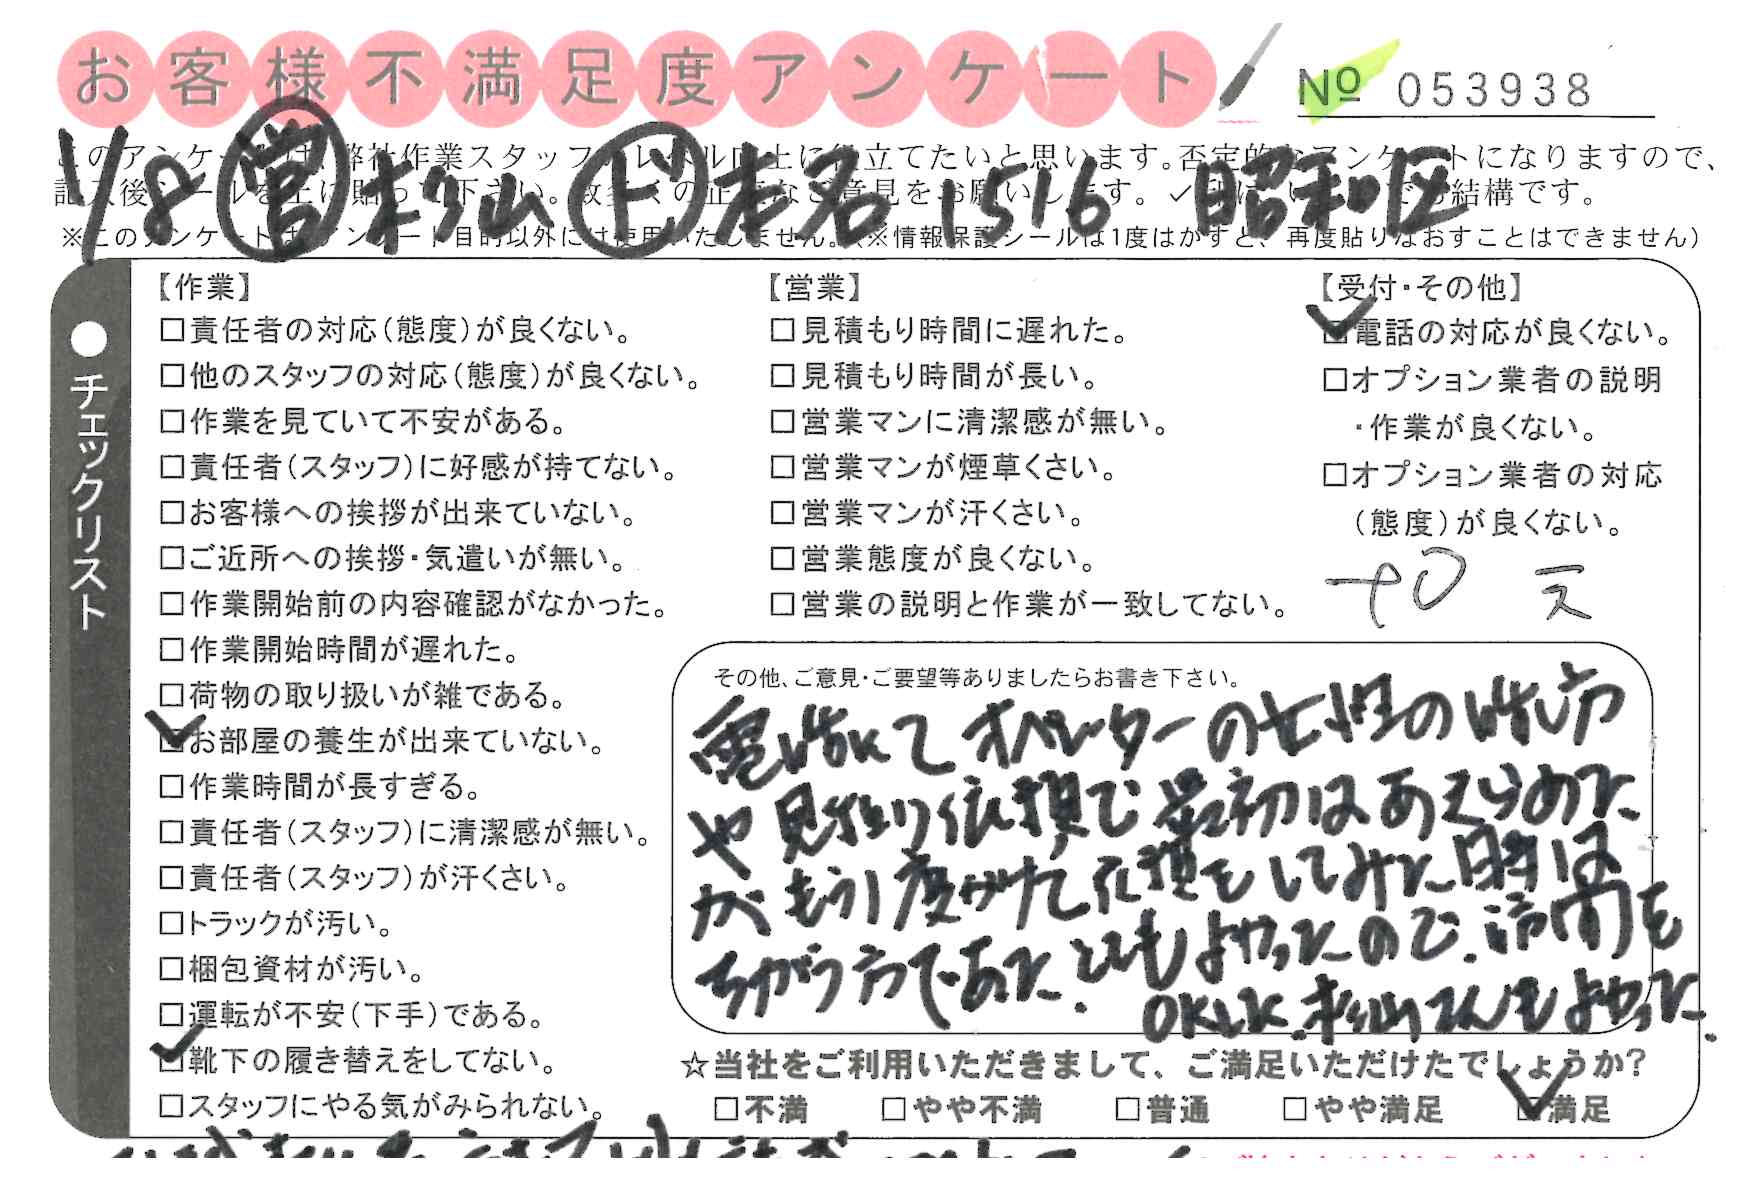 お客様不満足度アンケート
№ 053938
このアンケートは、弊社作業スタッフのレベル向上に役立てたいと思います。否定的なアンケートになりますので、
記入後シールを上に貼って下さい。数多くの正直なご意見をお願いします。✓印はいくつでも結構です。
※このアンケートはアンケート目的以外には使用いたしません。(※情報保護シールは1度はがすと、再度貼りなおすことはできません)
1/8 営 杉山 ド 本名 1516 昭和区
●チェックリスト
【作業】
□責任者の対応(態度)が良くない。
□他のスタッフの対応(態度)が良くない。
□作業を見ていて不安がある。
□責任者(スタッフ)に好感が持てない。
□お客様への挨拶が出来ていない。
□ご近所への挨拶・気遣いが無い。
□作業開始前の内容確認がなかった。
□作業開始時間が遅れた。
□荷物の取り扱いが雑である。
☑お部屋の養生が出来ていない。
□作業時間が長すぎる。
□責任者(スタッフ)に清潔感が無い。
□責任者(スタッフ)が汗くさい。
□トラックが汚い。
□梱包資材が汚い。
□運転が不安(下手)である。
☑靴下の履き替えをしてない。
□スタッフにやる気がみられない。
【営業】
□見積もり時間に遅れた。
□見積もり時間が長い。
□営業マンに清潔感が無い。
□営業マンが煙草くさい。
□営業マンが汗くさい。
□営業態度が良くない。
□営業の説明と作業が一致してない。
【受付・その他】
☑電話の対応が良くない。
□オプション業者の説明
・作業が良くない。
□オプション業者の対応
(態度)が良くない。
その他、ご意見・ご要望等ありましたらお書き下さい。
電話にて オペレーターの女性の話し方
や見積り依頼で最初はあきらめた
がもう1度かけて依頼をしてみた時は
ちがう方であった とてもよかったので、訪問を
OKした 杉山さんもよかった
☆当社をご利用いただきまして、ご満足いただけたでしょうか?
□不満 □やや不満 □普通 □やや満足 ☑満足